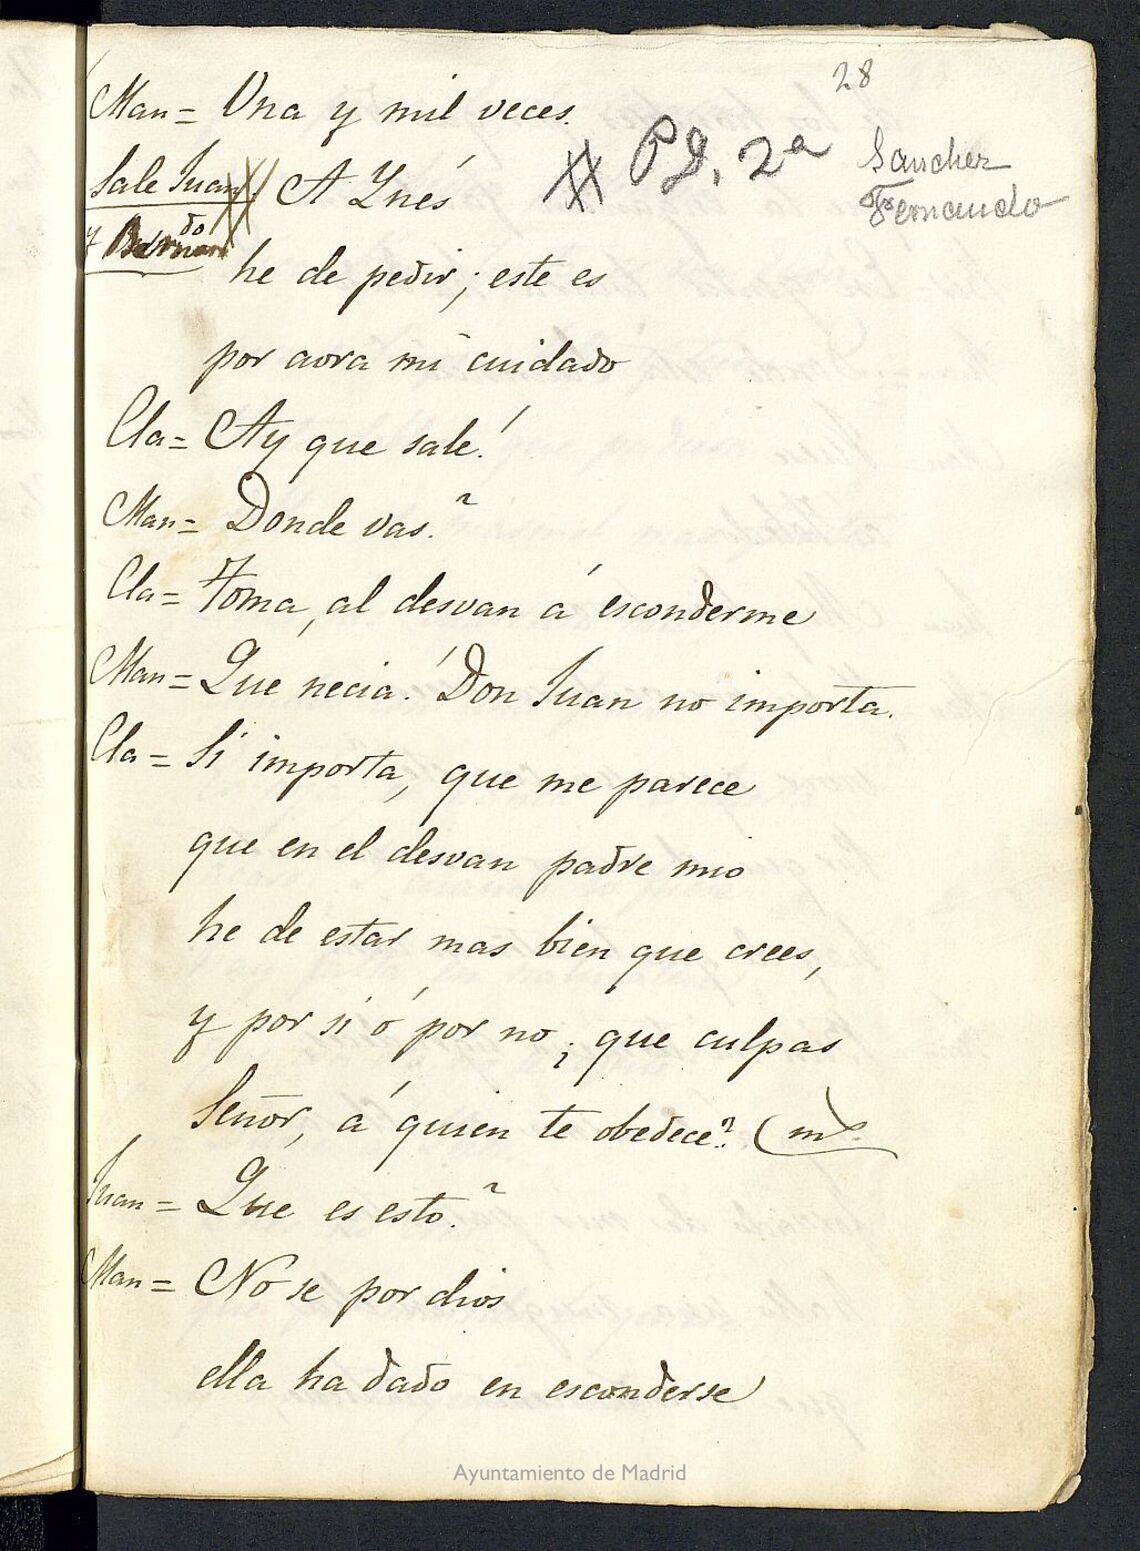 28
Man = Una y mil veces.
Sale Juan A Ynés # PD, 2ª Sanchez
Fernando
y Bernardo
he de pedir; este es
por aora mi cuidado
Cla = Ay que sale!
Man = Donde vas?
Cla = Toma, al desvan á esconderme
Man = Que necia! Don Juan no importa.
Cla = Si importa, que me parece
que en el desvan padre mio
he de estar mas bien que crees,
y por si ó por no, ¿que culpas
Señor, á quien te obedece?
Juan = Que es esto?
Man = No se por dios
ella ha dado en esconderse
Ayuntamiento de Madrid